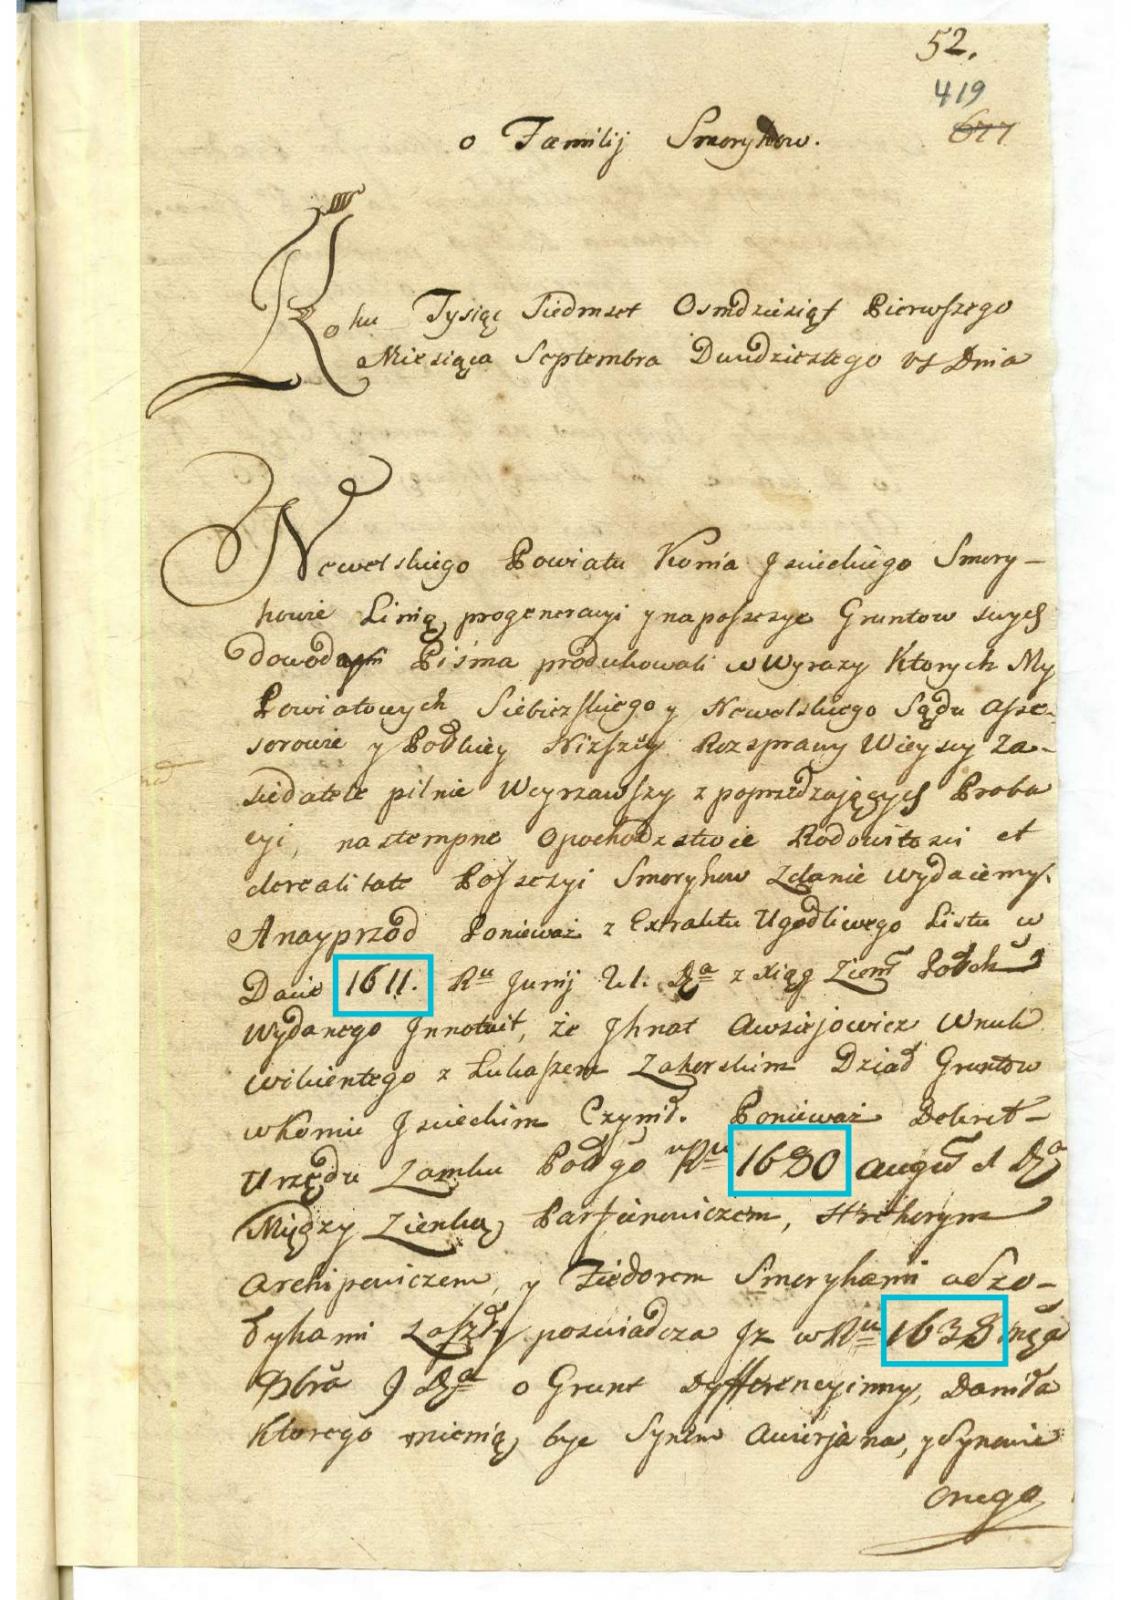 52.
419
677
o Familij Smorykow.
Roku Tysiąc Siedmset Osmdziesiąt Pierwszego
Miesiąca Septembra Dwudziestego Dnia
Newelskiego Powiatu Konia Jsieckiego Smory-
kowie Linią progeneracyi y na possesye Gruntow swych
Pisma produkowali w Wyrazy Ktorych My
Powiatowych Siebiezskiego y Newelskiego Sądu Asse-
sorowie y Niższey Rozprawy Wieyscy Za-
siedatele pilnie Weyrzawszy z poprzedzaiących Proba
cyi, nastempne o pochodzstwie Rodowitosci et
de realitate Possesyi Smorykow Zdanie wydaiemy.
A nayprzod Ponieważ z Extraktu Ugodliwego Listu w
Dacie 1611. Ru Junij 21. Da z xiąg Ziem
wydanego Jnnotuit, że Jhnat Awsiejowicz Wnuk
z Łukaszem Zahorskim Dział Gruntow
w Koniu Jsieckim Czynił. Ponieważ Dekret
Urzędu Zamku w Ru 1680 Da
Między Zienką Parfienowiczem,
Archipowiczem, y Fiedorem Smorykami a Szo-
bykami zaszły poswiadcza Jż w Ru 1638 mca
9bra Da o Grunt Dyfferencyinny, Daniła
Ktorego mienią byc Synem Awierjana, y Synowie
onego